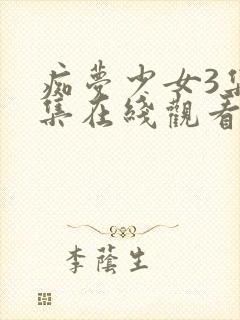 痴夢少女3集
集在綫觀看
李蔭生